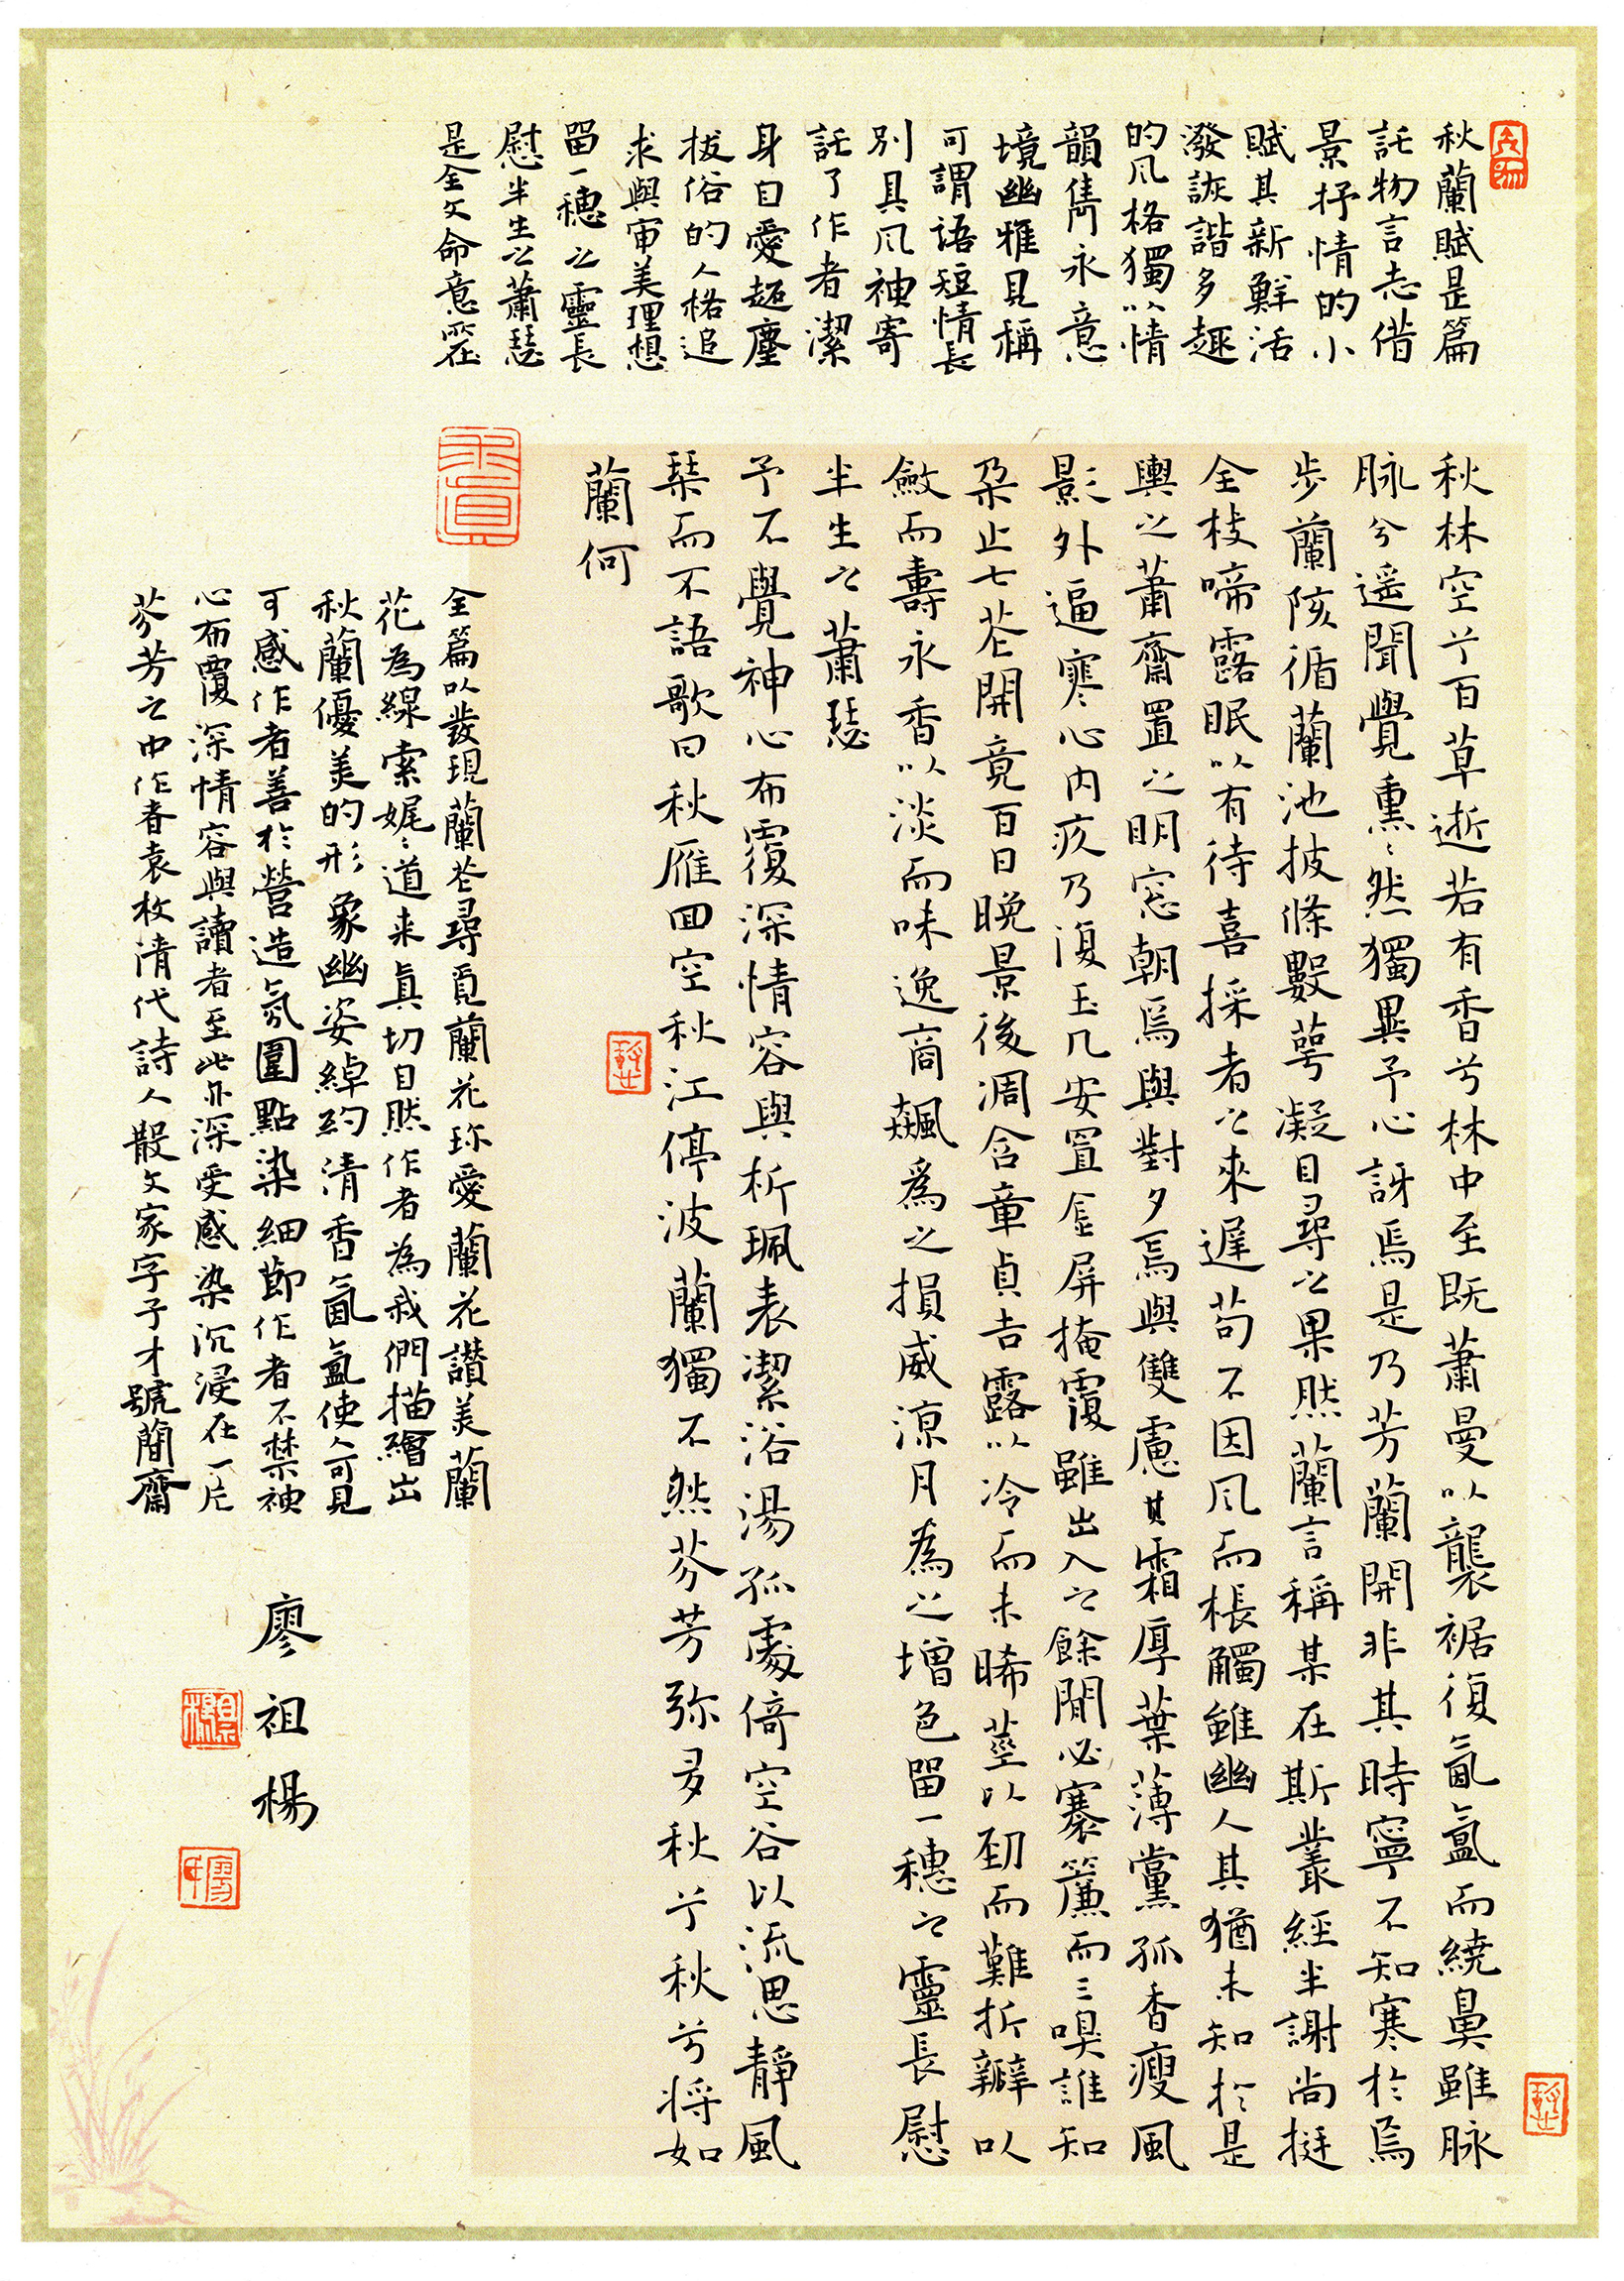 秋蘭賦是篇
託物言志借
景抒情的小
賦其新鮮活
潑詼諧多趣
的风格獨以情
韻雋永意
境幽雅見稱
可謂語短情長
別具风神寄
託了作者潔
身自愛超塵
拔俗的人格追
求與审美理想
留一穗之靈長
慰半生之蕭瑟
是全文命意所在
秋林空兮百草逝若有香兮林中至既蕭曼以襲裾復氤氳而繞鼻雖脉
脉兮遥聞覺熏熏然獨異予心訝焉是乃芳蘭開非其時寧不知寒於焉
步蘭陔循蘭池披條數萼凝目尋之果然蘭言稱某在斯叢經半謝尚挺
全枝啼露眠以有待喜採者之來遲苟不因风而棖觸雖幽人其猶未知於是
舁之蕭齋置之明窓朝焉與對夕焉與雙慮其霜厚葉薄黨孤香瘦風
影外逼寒心内疚乃復玉几安置金屏掩覆雖出入之餘閒必褰簾而三嗅誰知
朶止七花開竟百日晚景後凋含章貞吉露以冷而未晞莖以勁而難折瓣以
斂而壽永香以淡而味逸商飆爲之損威凉月為之增色留一穗之靈長慰
半生之蕭瑟
予不覺神心布覆深情容與析珮表潔浴湯孤處倚空谷以流思靜風
琹而不語歌曰秋雁回空秋江停波蘭獨不然芬芳弥多秋兮秋兮将如
蘭何
全篇以發現蘭花尋覓蘭花珎愛蘭花讃美蘭
花為線索娓娓道来真切自然作者為我們描繪出
秋蘭優美的形象幽姿綽約清香氤氳使人可見
可感作者善於營造氛圍點染細節作者不禁神
心布覆深情容與讀者至此亦深受感染沉浸在一片
芬芳之中作者袁枚清代詩人散文家字子才號簡齋
廖祖楊